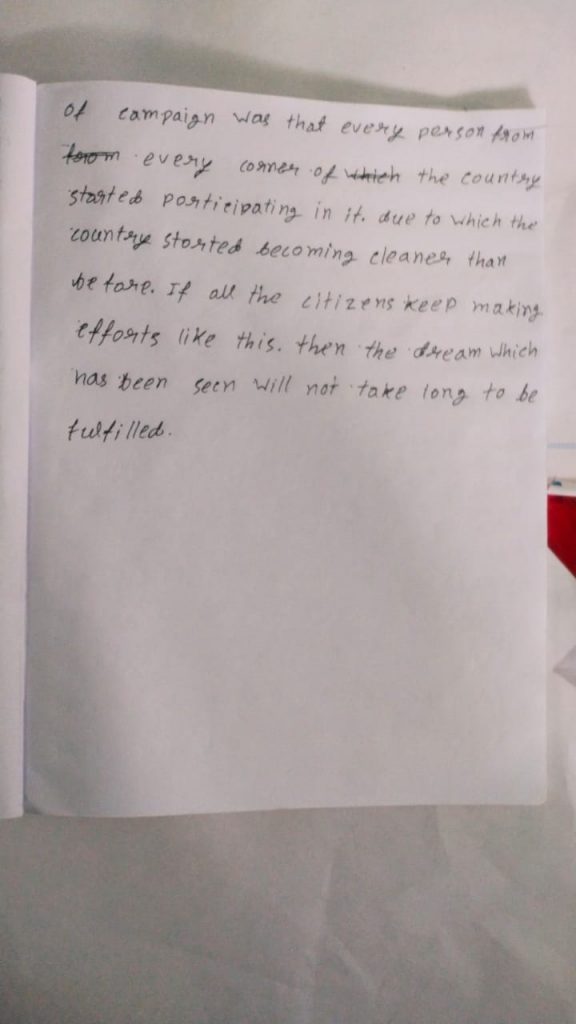 of campaign was that every person from
from every corner of which the country
started participating in it. due to which the
country started becoming cleaner than
before. If all the citizens keep making
efforts like this. then the dream which
has been seen will not take long to be
fulfilled.